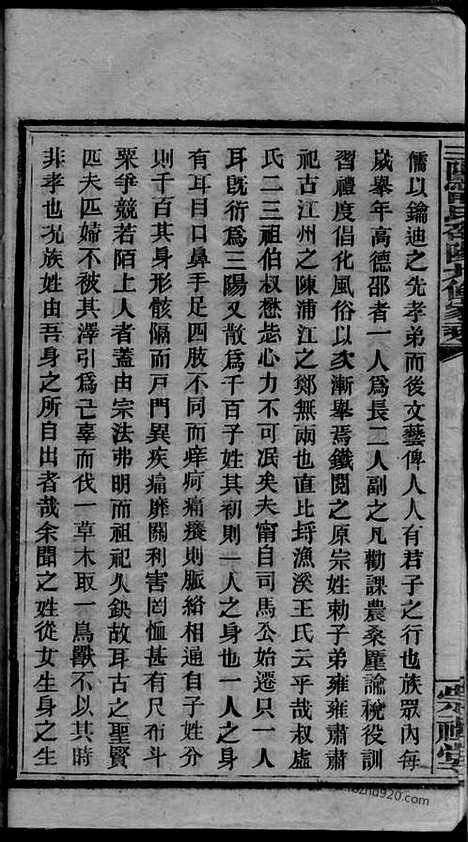 儒以鑰迪之先孝弟而後文藝俾人人有君子之行也族眾內每
歲舉年高德邵者一人爲長二人副之凡勸課農桑釐諭稅役訓
習禮度倡化風俗以次漸舉焉鐵閱之原宗姓勅子弟雍雍肅肅
祀古江州之陳浦江之鄭無兩也直比埓漁溪王氏云乎哉叔虛
氏二三祖伯叔懋毖心力不可泯矣夫甯自司馬公始遷只一人
耳旣衍爲三陽又散爲千百子姓其初則一人之身也一人之身
有耳目口鼻手足四肢不同而痒疴痛癢則脈絡相通自子姓分
則千百其身形骸隔而戸門異疾痛靡關利害罔恤甚有尺布斗
粟爭競若陌上人者蓋由宗法弗明而祖祀久鈌故耳古之聖賢
匹夫匹婦不被其澤引爲己辜而伐一草木取一鳥獸不以其時
非孝也况族姓由吾身之所自出者哉余聞之姓從女生身之生